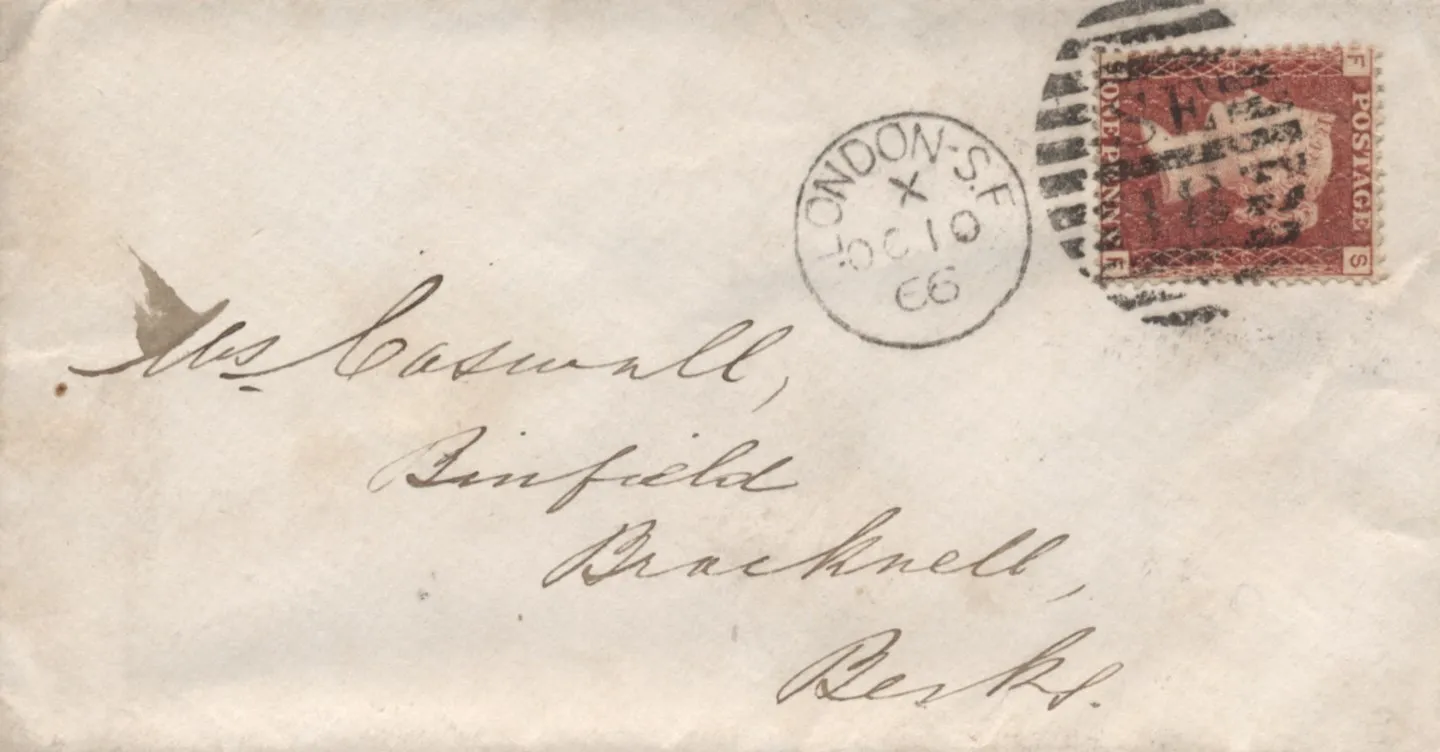 LONDON-S.E
X
OC 10
66
POSTAGE
ONE PENNY
F S
S F
SE
Mrs Caswall,
Binfield
Bracknell,
Berks.